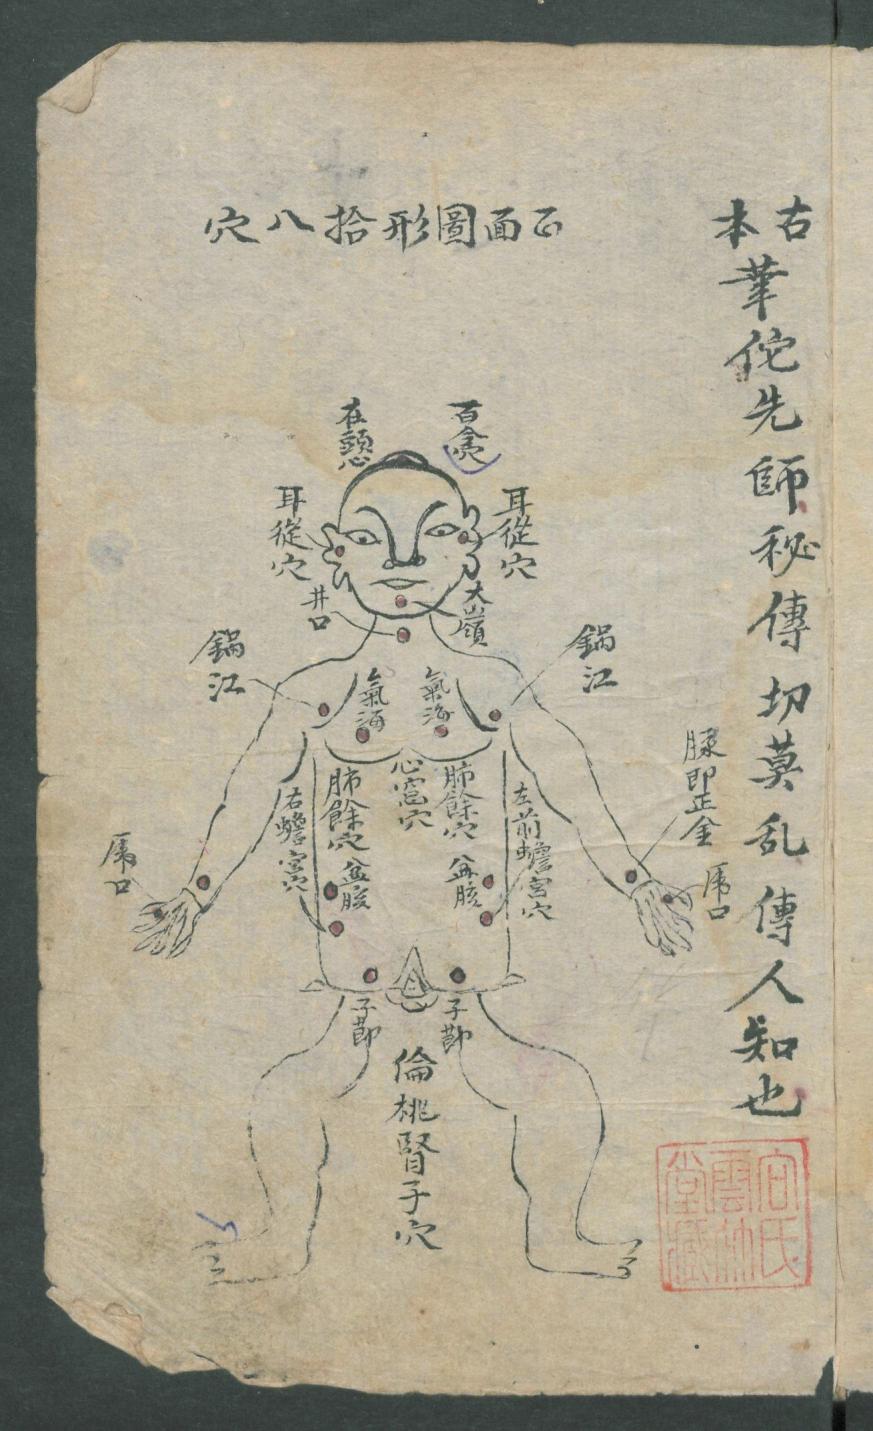 古本華佗先師秘傳切莫乱傳人知也
正面圖形拾八穴
百會
耳從穴
耳從穴
井口
大嶺
鍋江
鍋江
氣海
氣海
心窩穴
肺餘穴
肺餘穴
左前蟾宮穴
右蟾宮穴
盆胲
盆胲
脉即正金
虎口
虎口
子節
子節
倫桃腎子穴